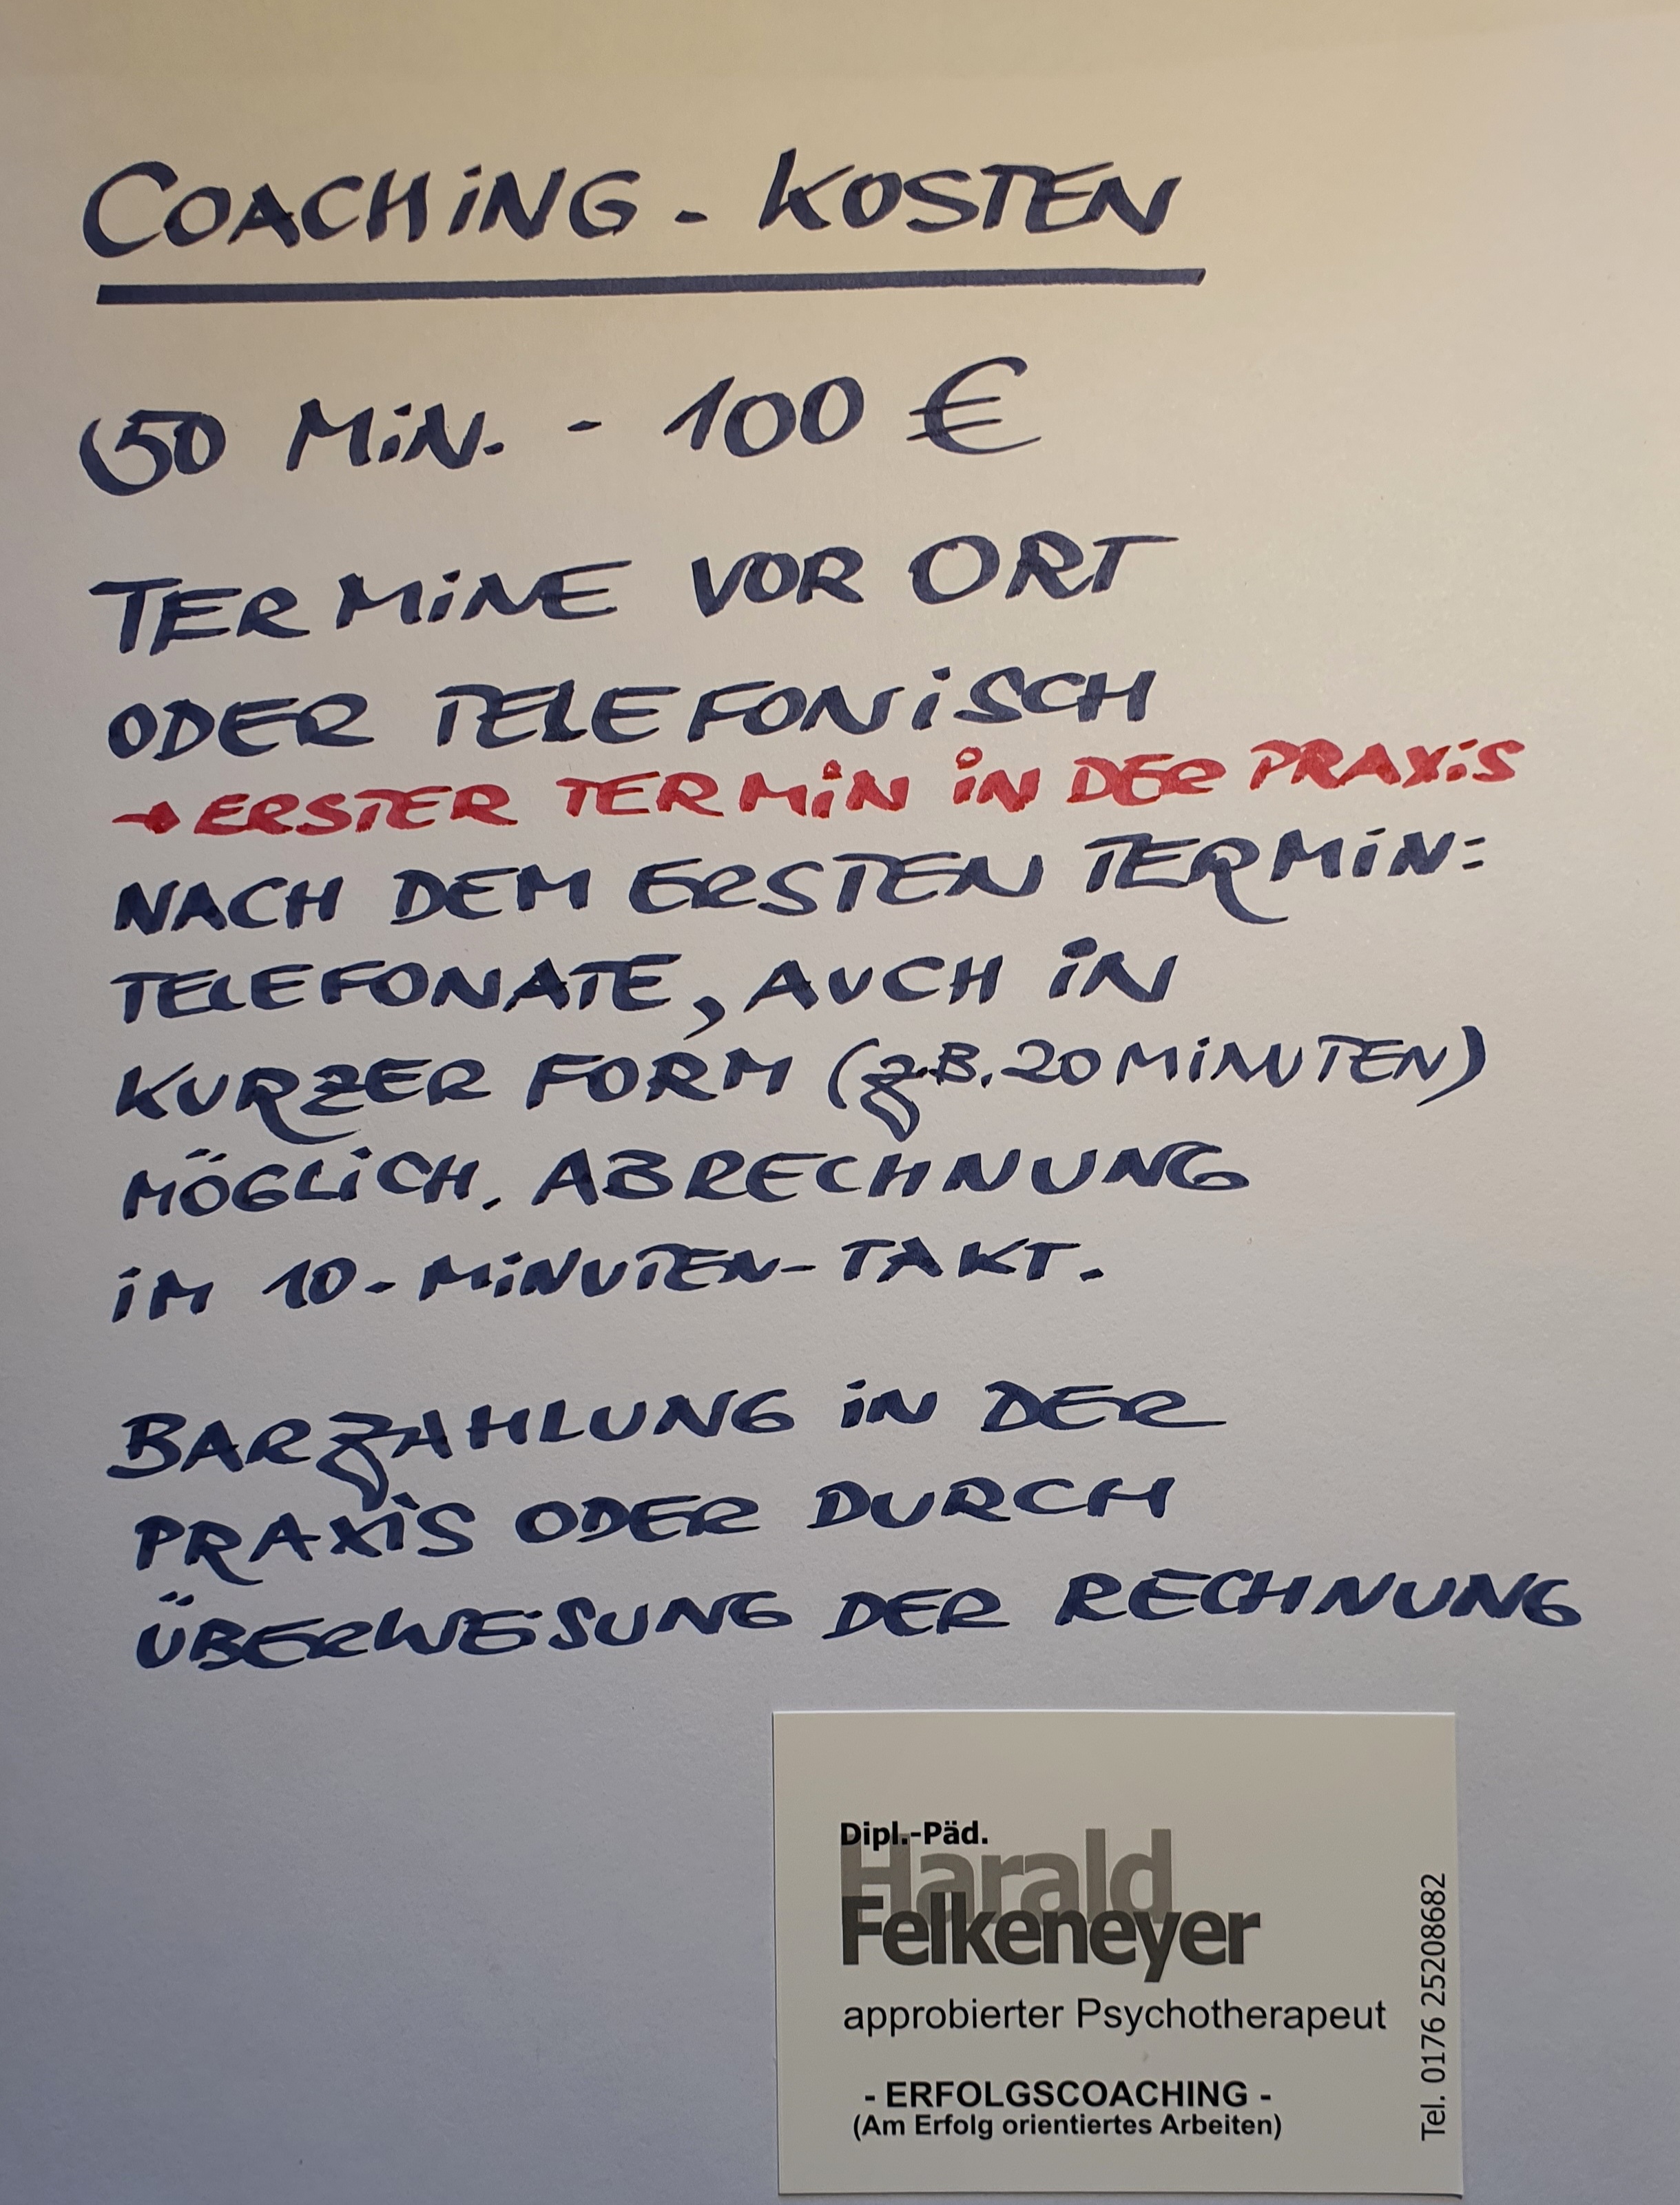 COACHiNG - KOSTEN
50 MiN. - 100 €
TERMiNE VOR ORT
ODER TELEFONiSCH
→ ERSTER TERMiN iN DER PRAXiS
NACH DEM ERSTEN TERMiN:
TELEFONATE, AUCH iN
KURZER FORM (z.B. 20 MiNUTEN)
MÖGLiCH. ABRECHNUNG
iM 10-MiNUTEN-TAKT.
BARZAHLUNG iN DER
PRAXiS ODER DURCH
ÜBERWEiSUNG DER RECHNUNG
Dipl.-Päd.
Harald
Felkeneyer
approbierter Psychotherapeut
- ERFOLGSCOACHING -
(Am Erfolg orientiertes Arbeiten)
Tel. 0176 25208682